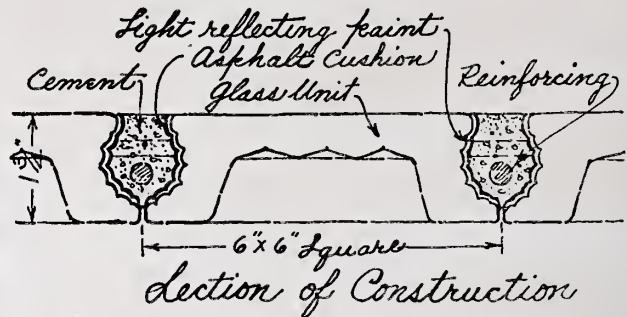 Light reflecting paint
Asphalt Cushion
Cement
Reinforcing
Glass Unit
6" x 6" Square
Section of Construction